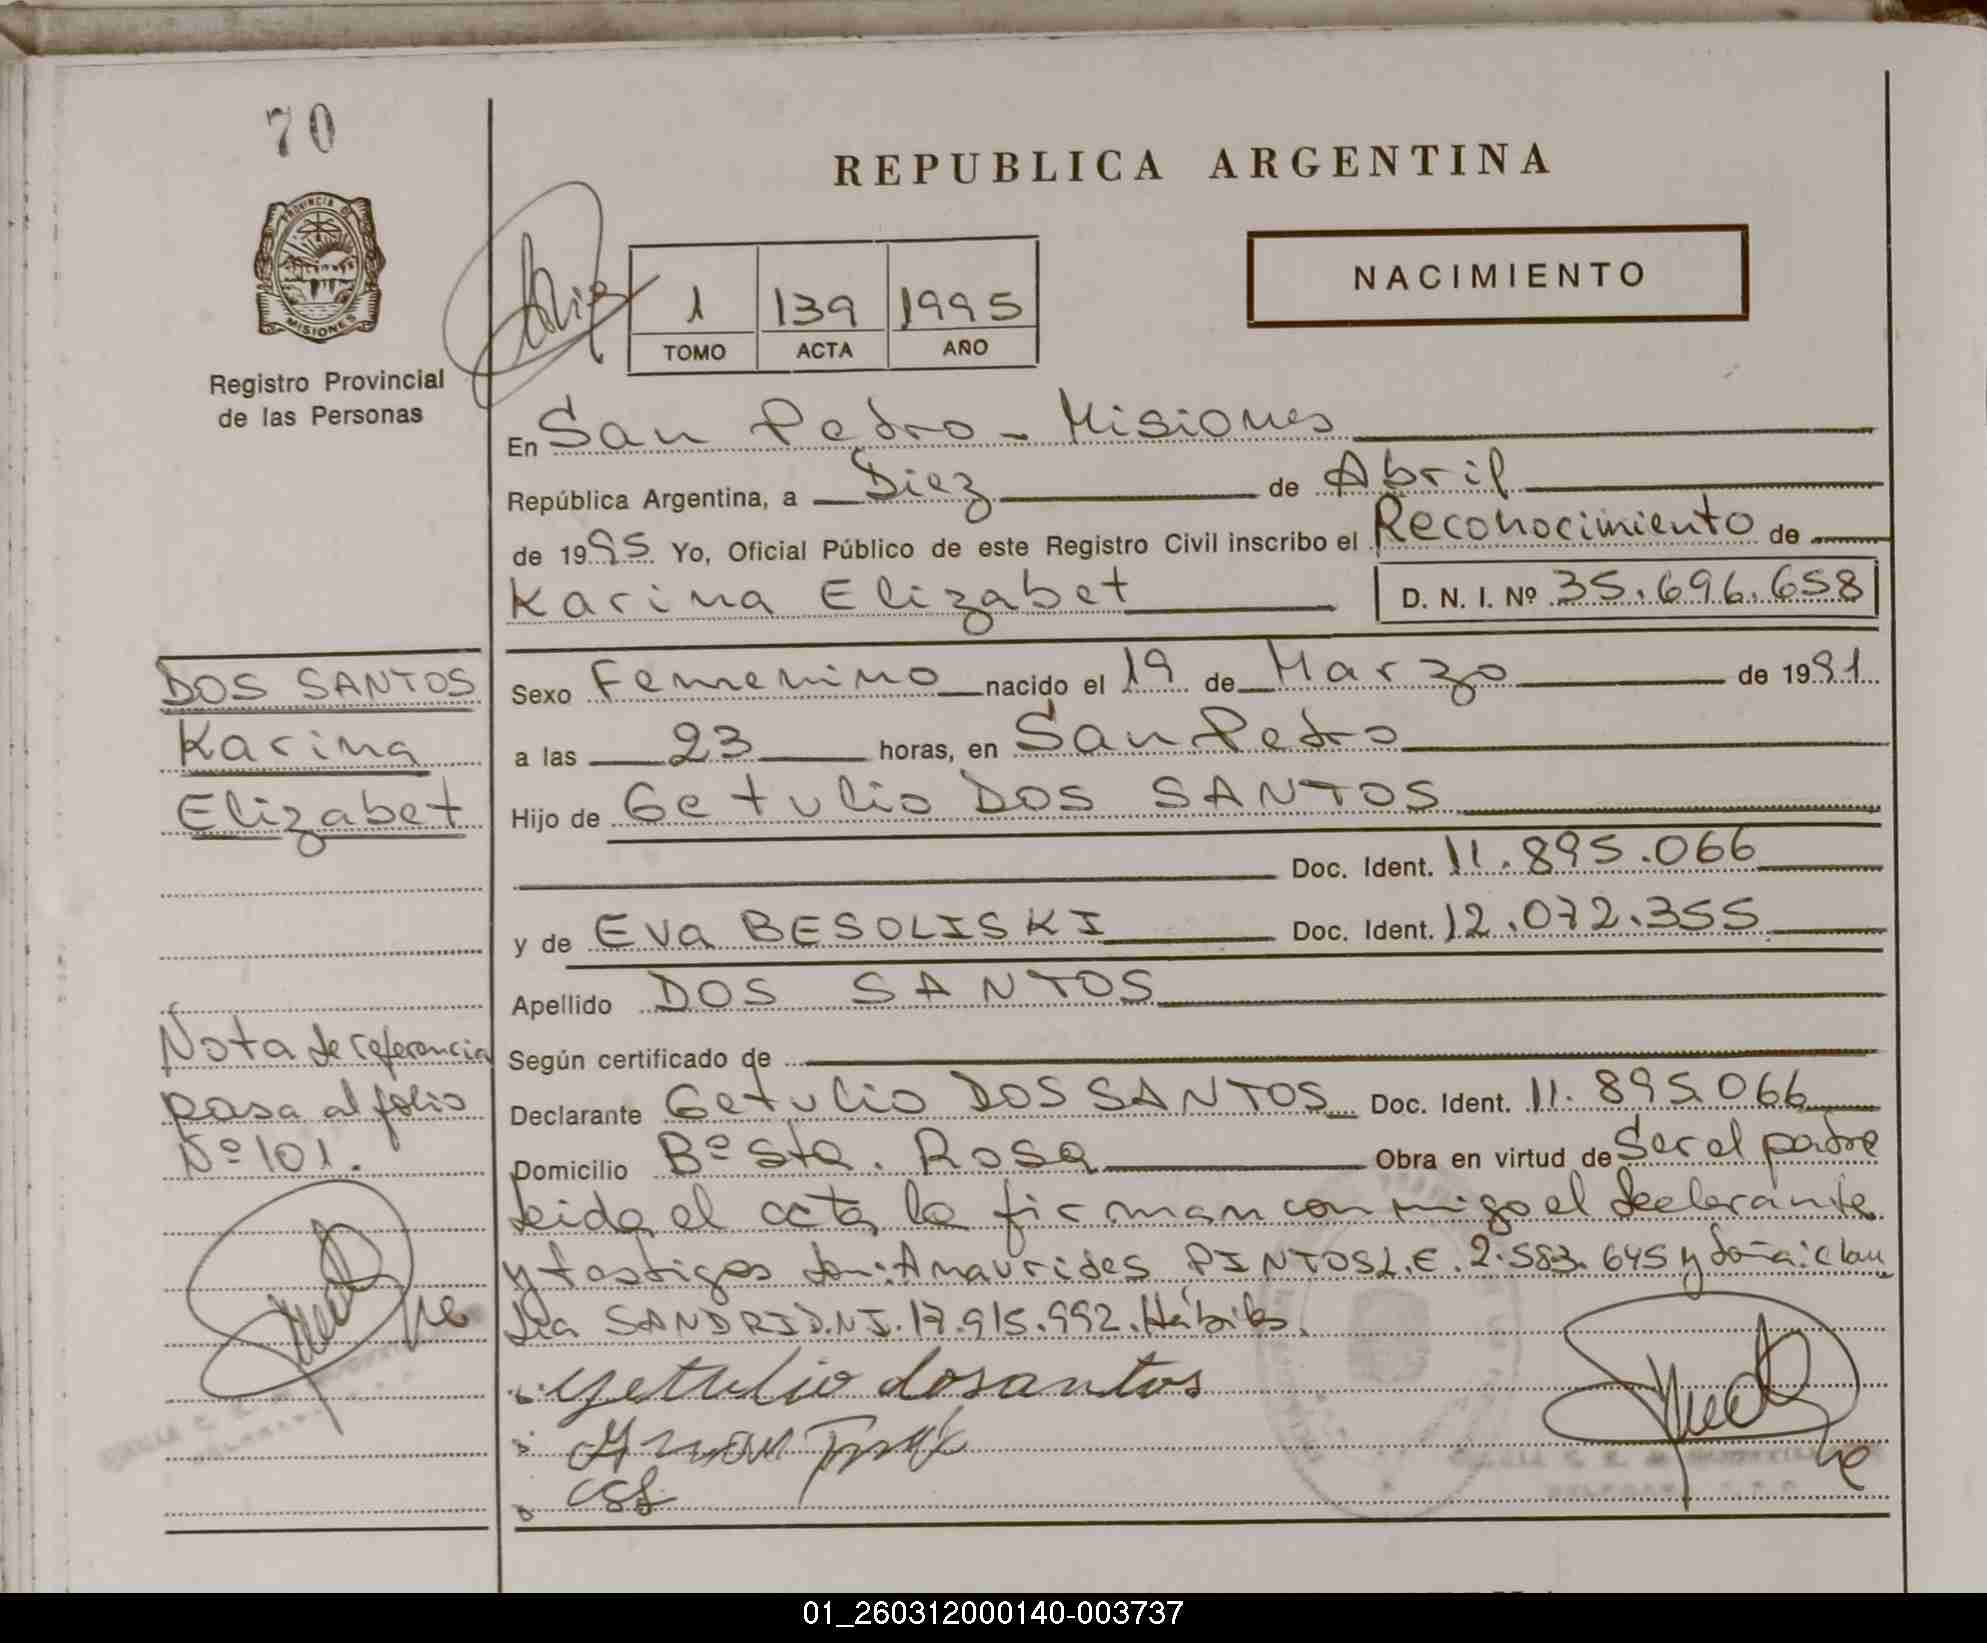 70
REPUBLICA ARGENTINA
PROVINCIA DE
MISIONES
NACIMIENTO
1 139 1995
TOMO ACTA AÑO
Registro Provincial
de las Personas
En San Pedro - Misiones
República Argentina, a Diez de Abril
de 1995 Yo, Oficial Público de este Registro Civil inscribo el Reconocimiento de
Karina Elizabet D. N. I. Nº 35.696.658
DOS SANTOS
Karina
Elizabet
Sexo Femenino nacido el 19 de Marzo de 1991
a las 23 horas, en San Pedro
Hijo de Getulio DOS SANTOS
Doc. Ident. 11.895.066
y de Eva BESOLISKI Doc. Ident. 12.072.355
Apellido DOS SANTOS
Nota de referencia
pasa al folio
Nº 101.
Según certificado de
Declarante Getulio DOS SANTOS Doc. Ident. 11.895.066
Domicilio Bº Sta. Rosa Obra en virtud de Ser el padre
Leida el acta la firman conmigo el declarante
y testigos don: Amaurides PINTOS L.E. 2.583.645 y doña: Clau
dia SANDRI D.N.I. 17.915.992. Hábiles.
Getulio dosantos
01_260312000140-003737